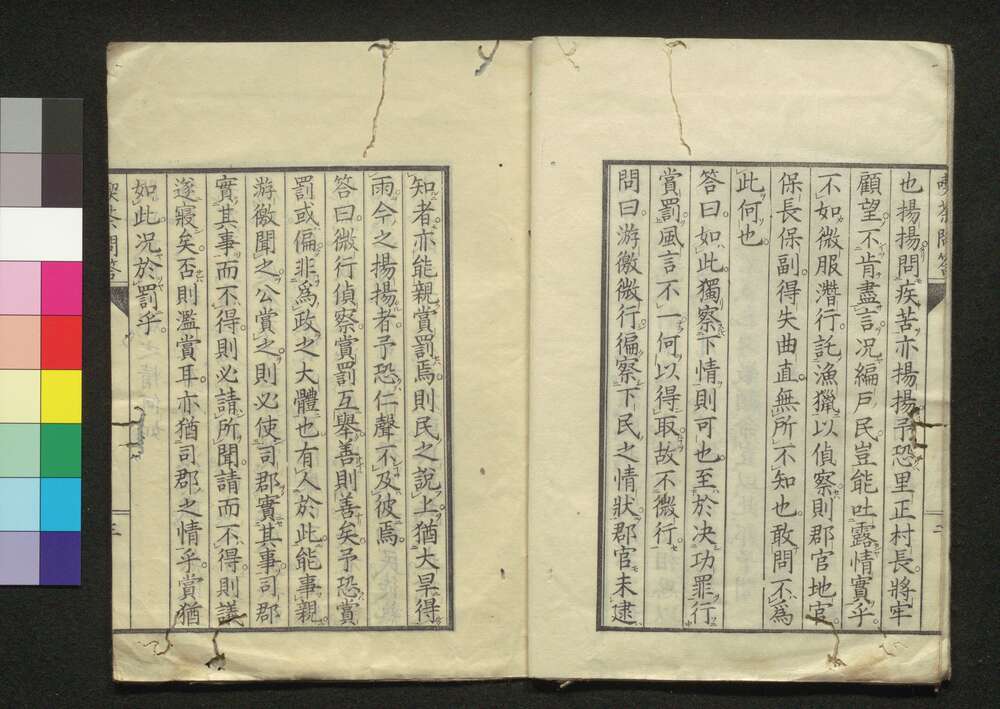 也揚揚問疾苦亦揚揚予恐里正村長將牢
顧望不肯盡言况編戶民豈能吐露情實乎
不如微服潛行託漁獵以偵察則郡官地官
保長保副得失曲直無所不知也敢問不爲
此何也
答曰如此獨察下情則可也至於决功罪行
賞罰風言不一何以得取故不微行
問曰游徼微行徧察下民之情狀郡官未逮
知者亦能親賞罰焉則民之說上猶大旱得
雨今之揚揚者予恐仁聲不及彼焉
答曰微行偵察賞罰互舉善則善矣予恐賞
罰或偏非爲政之大體也有人於此能事親
游徼聞之公賞之則必使司郡實其事司郡
實其事而不得則必請所聞請而不得則議
遂寢矣否則濫賞耳亦猶司郡之情乎賞猶
如此况於罰乎
問答
三